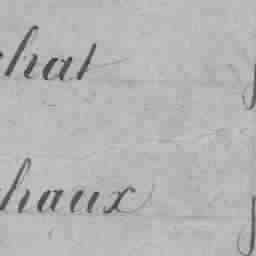 chat
haux